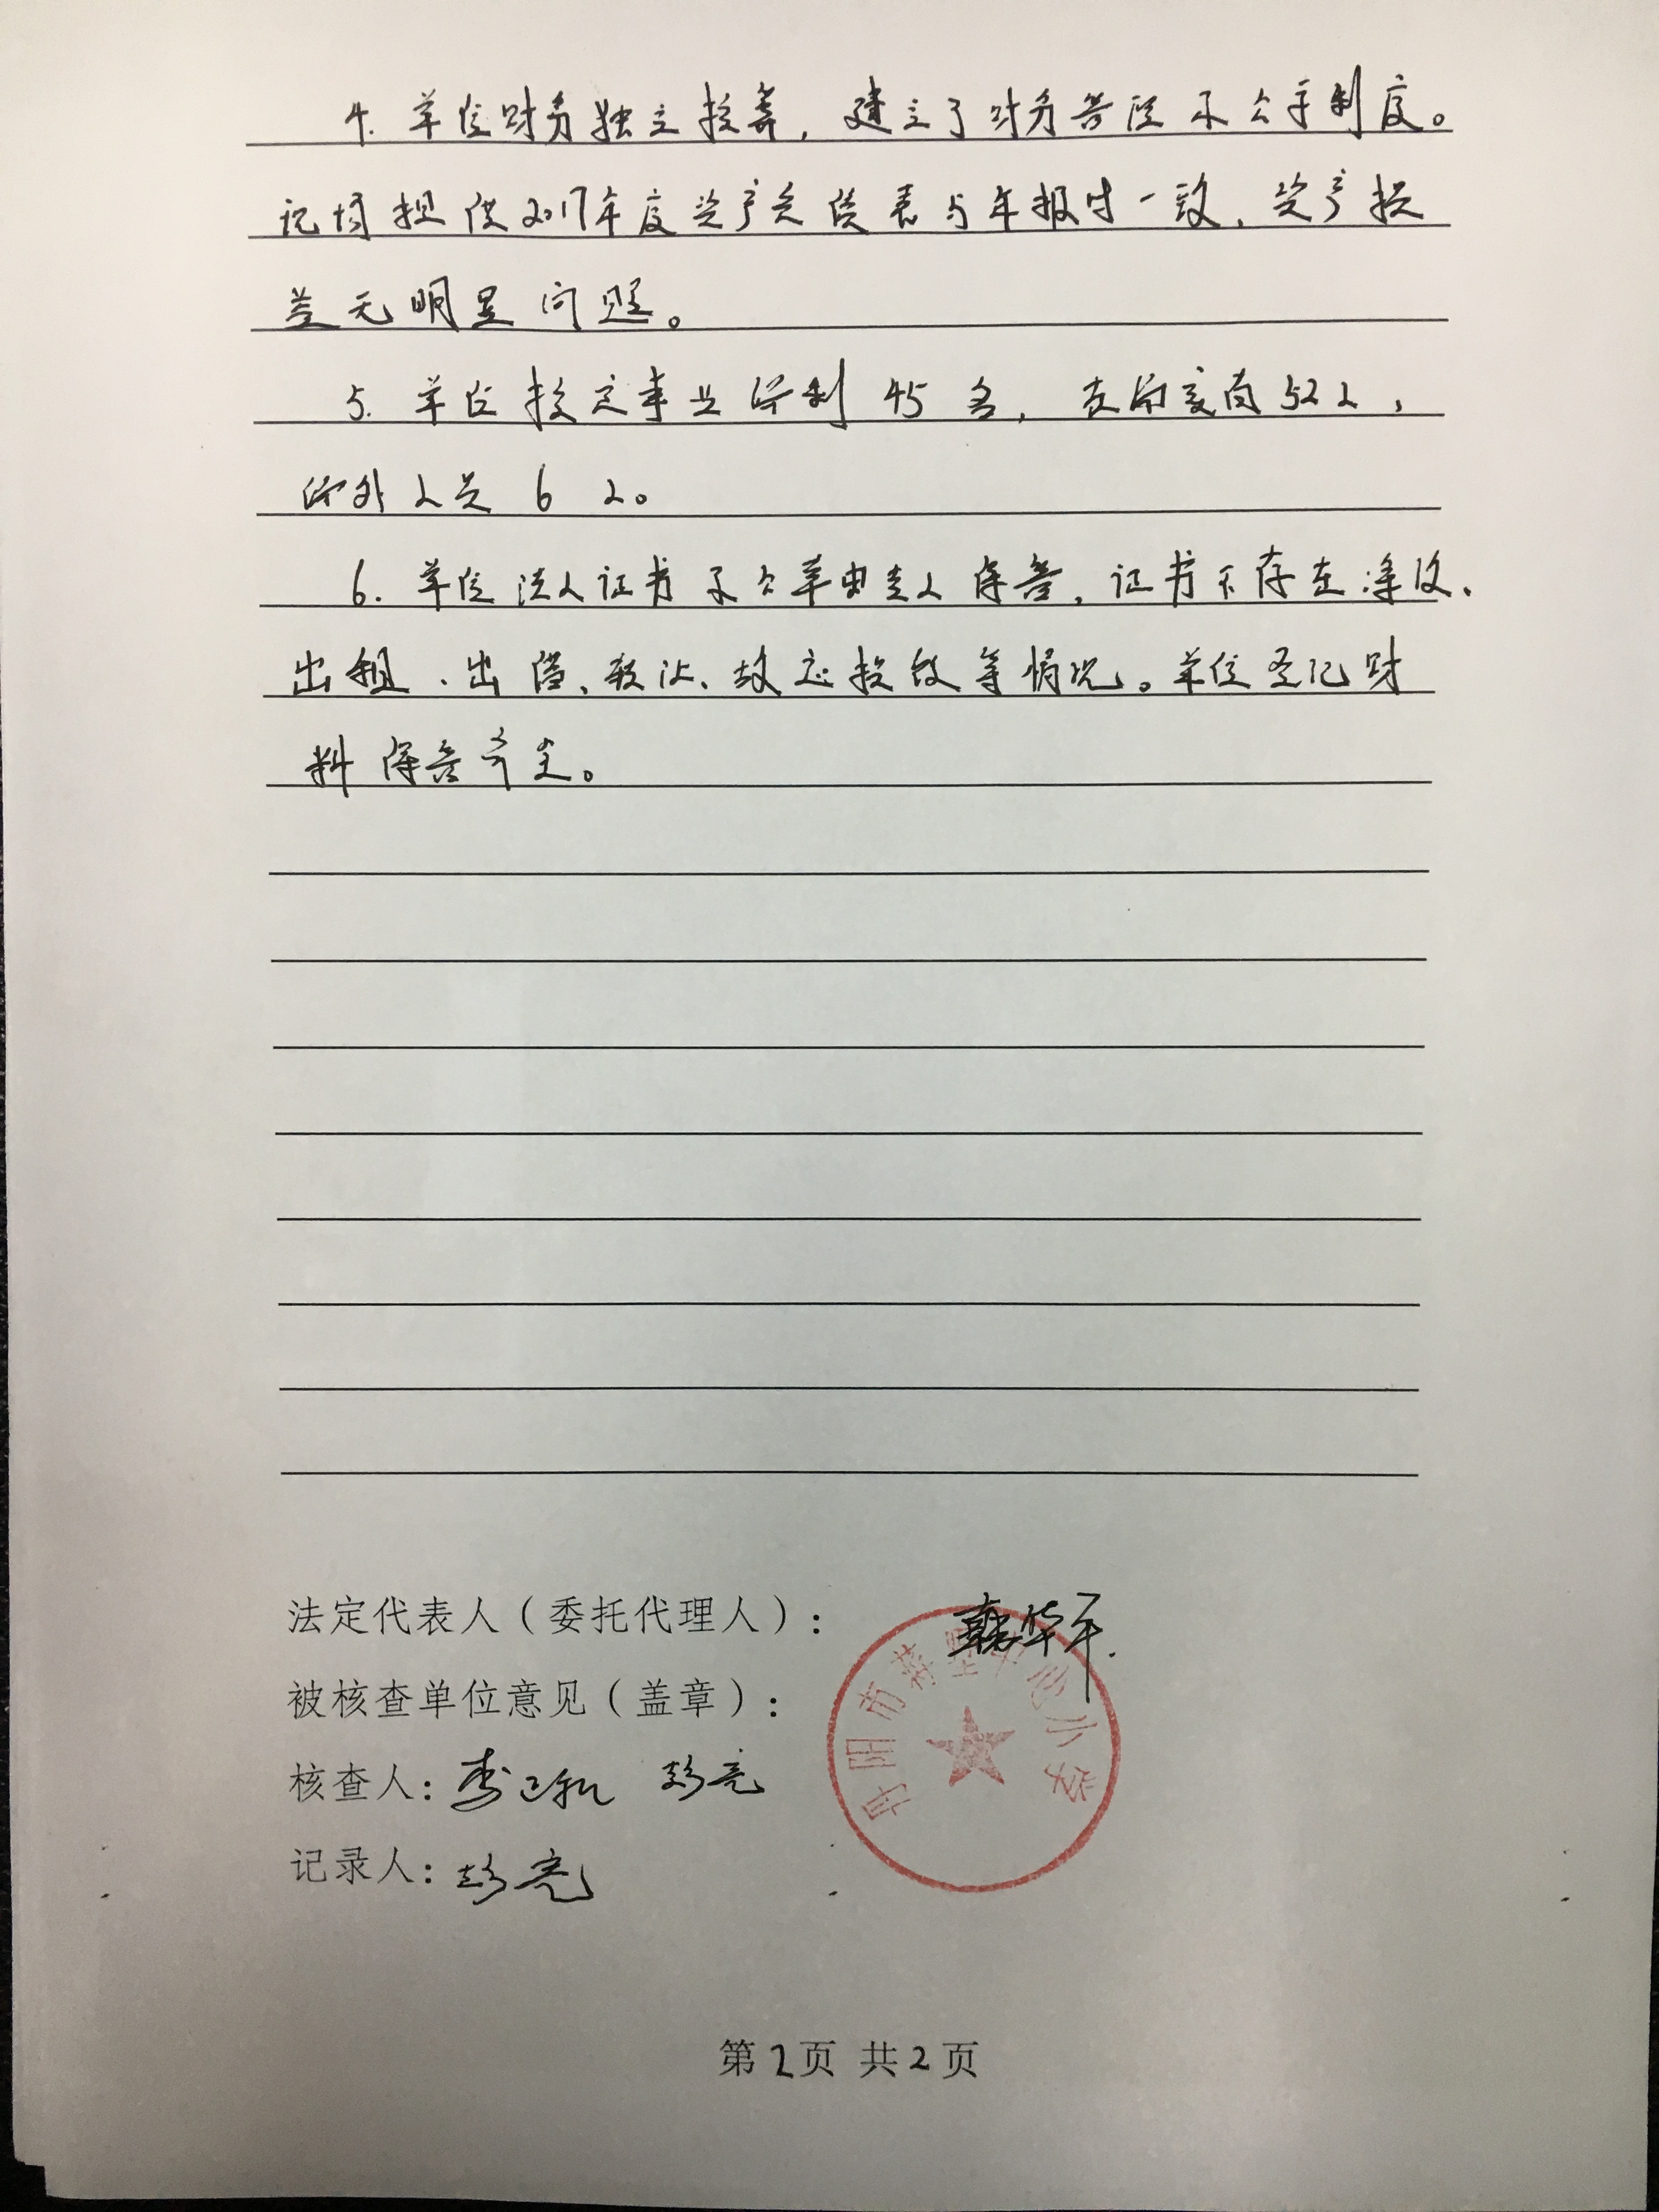 4. 单位财务独立核算，建立了财务管理和公章制度。
现场提供2017年度资产负债表与年报时一致，资产损
益无明显问题。
5. 单位核定事业编制45名，在编実有52人，
编外人员6人。
6. 单位法人证书和公章由专人保管，证书不存在涂改、
出租、出借、转让、故意损毁等情况。单位登记材
料保管齐全。
法定代表人（委托代理人）：
华平
被核查单位意见（盖章）：
丹阳市蒋墅中心小学
核查人：李 彭亮
记录人：彭亮
第2页 共2页